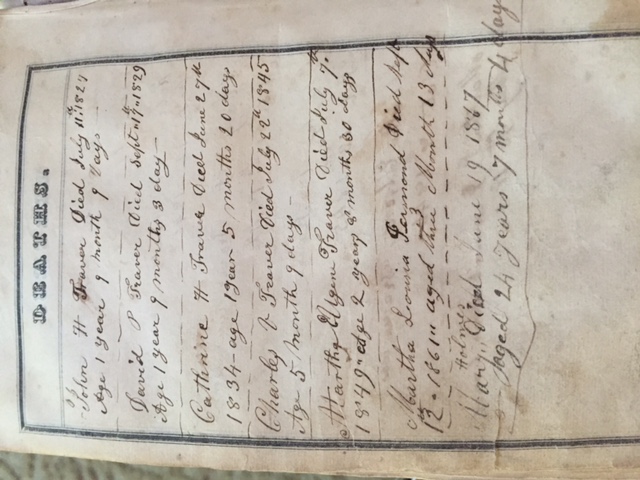 DEATHS.
John H Traver Died July 11th 1827
Age 1 year 9 month 9 days
David P Traver Died Sept 17th 1829
Age 1 year 9 months 3 day
Catherine H Traver Died June 27th
1834 - age 1 year 5 months 20 days
Charley Traver Died July 22th 1845
Age 5 month 9 days -
Martha Traver Died July 7th
1849 age 2 years 8 months 30 days
Martha Lovisia Died Sept
12th 1861 aged three Month 13 days
Holmes
Mary Died June 19 1867
Aged 24 Years 7 months 4 days